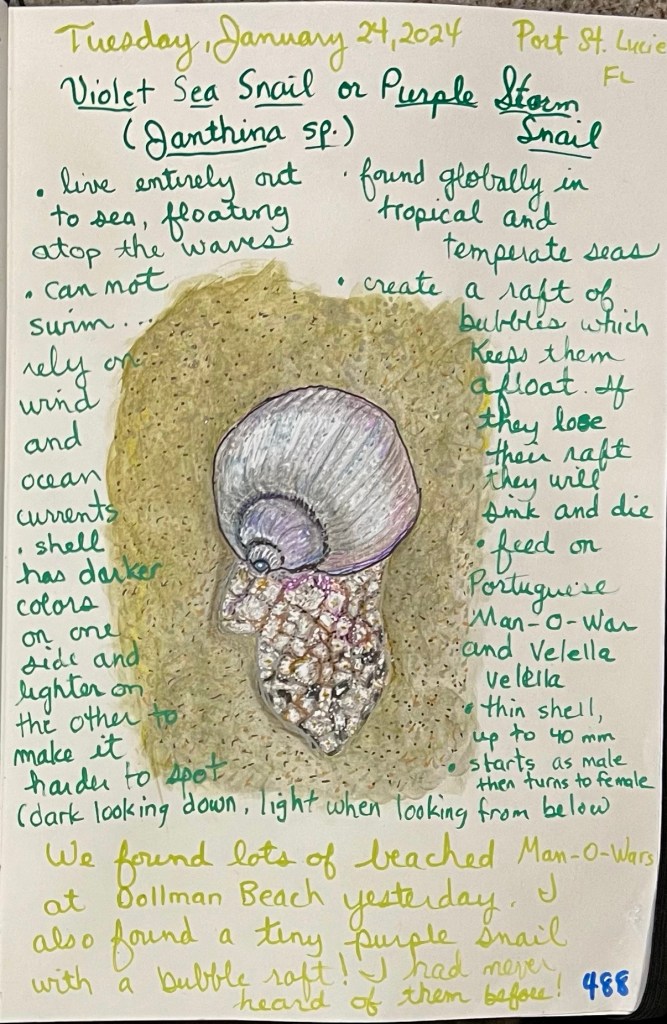 Tuesday, January 24, 2024 Port St. Lucie
FL
Violet Sea Snail or Purple Storm
(Janthina sp.) Snail
• live entirely out
to sea, floating
atop the waves
• can not
swim...
rely on
wind
and
ocean
currents
• shell
has darker
colors
on one
side and
lighter on
the other to
make it
harder to spot
(dark looking down, light when looking from below
• found globally in
tropical and
temperate seas
• create a raft of
bubbles which
keeps them
afloat. If
they lose
their raft
they will
sink and die
• feed on
Portuguese
Man-O-War
and Velella
velella
• thin shell,
up to 40 mm
• starts as male
then turns to female
We found lots of beached Man-O-Wars
at Dollman Beach yesterday. I
also found a tiny purple snail
with a bubble raft! I had never
heard of them before!
488